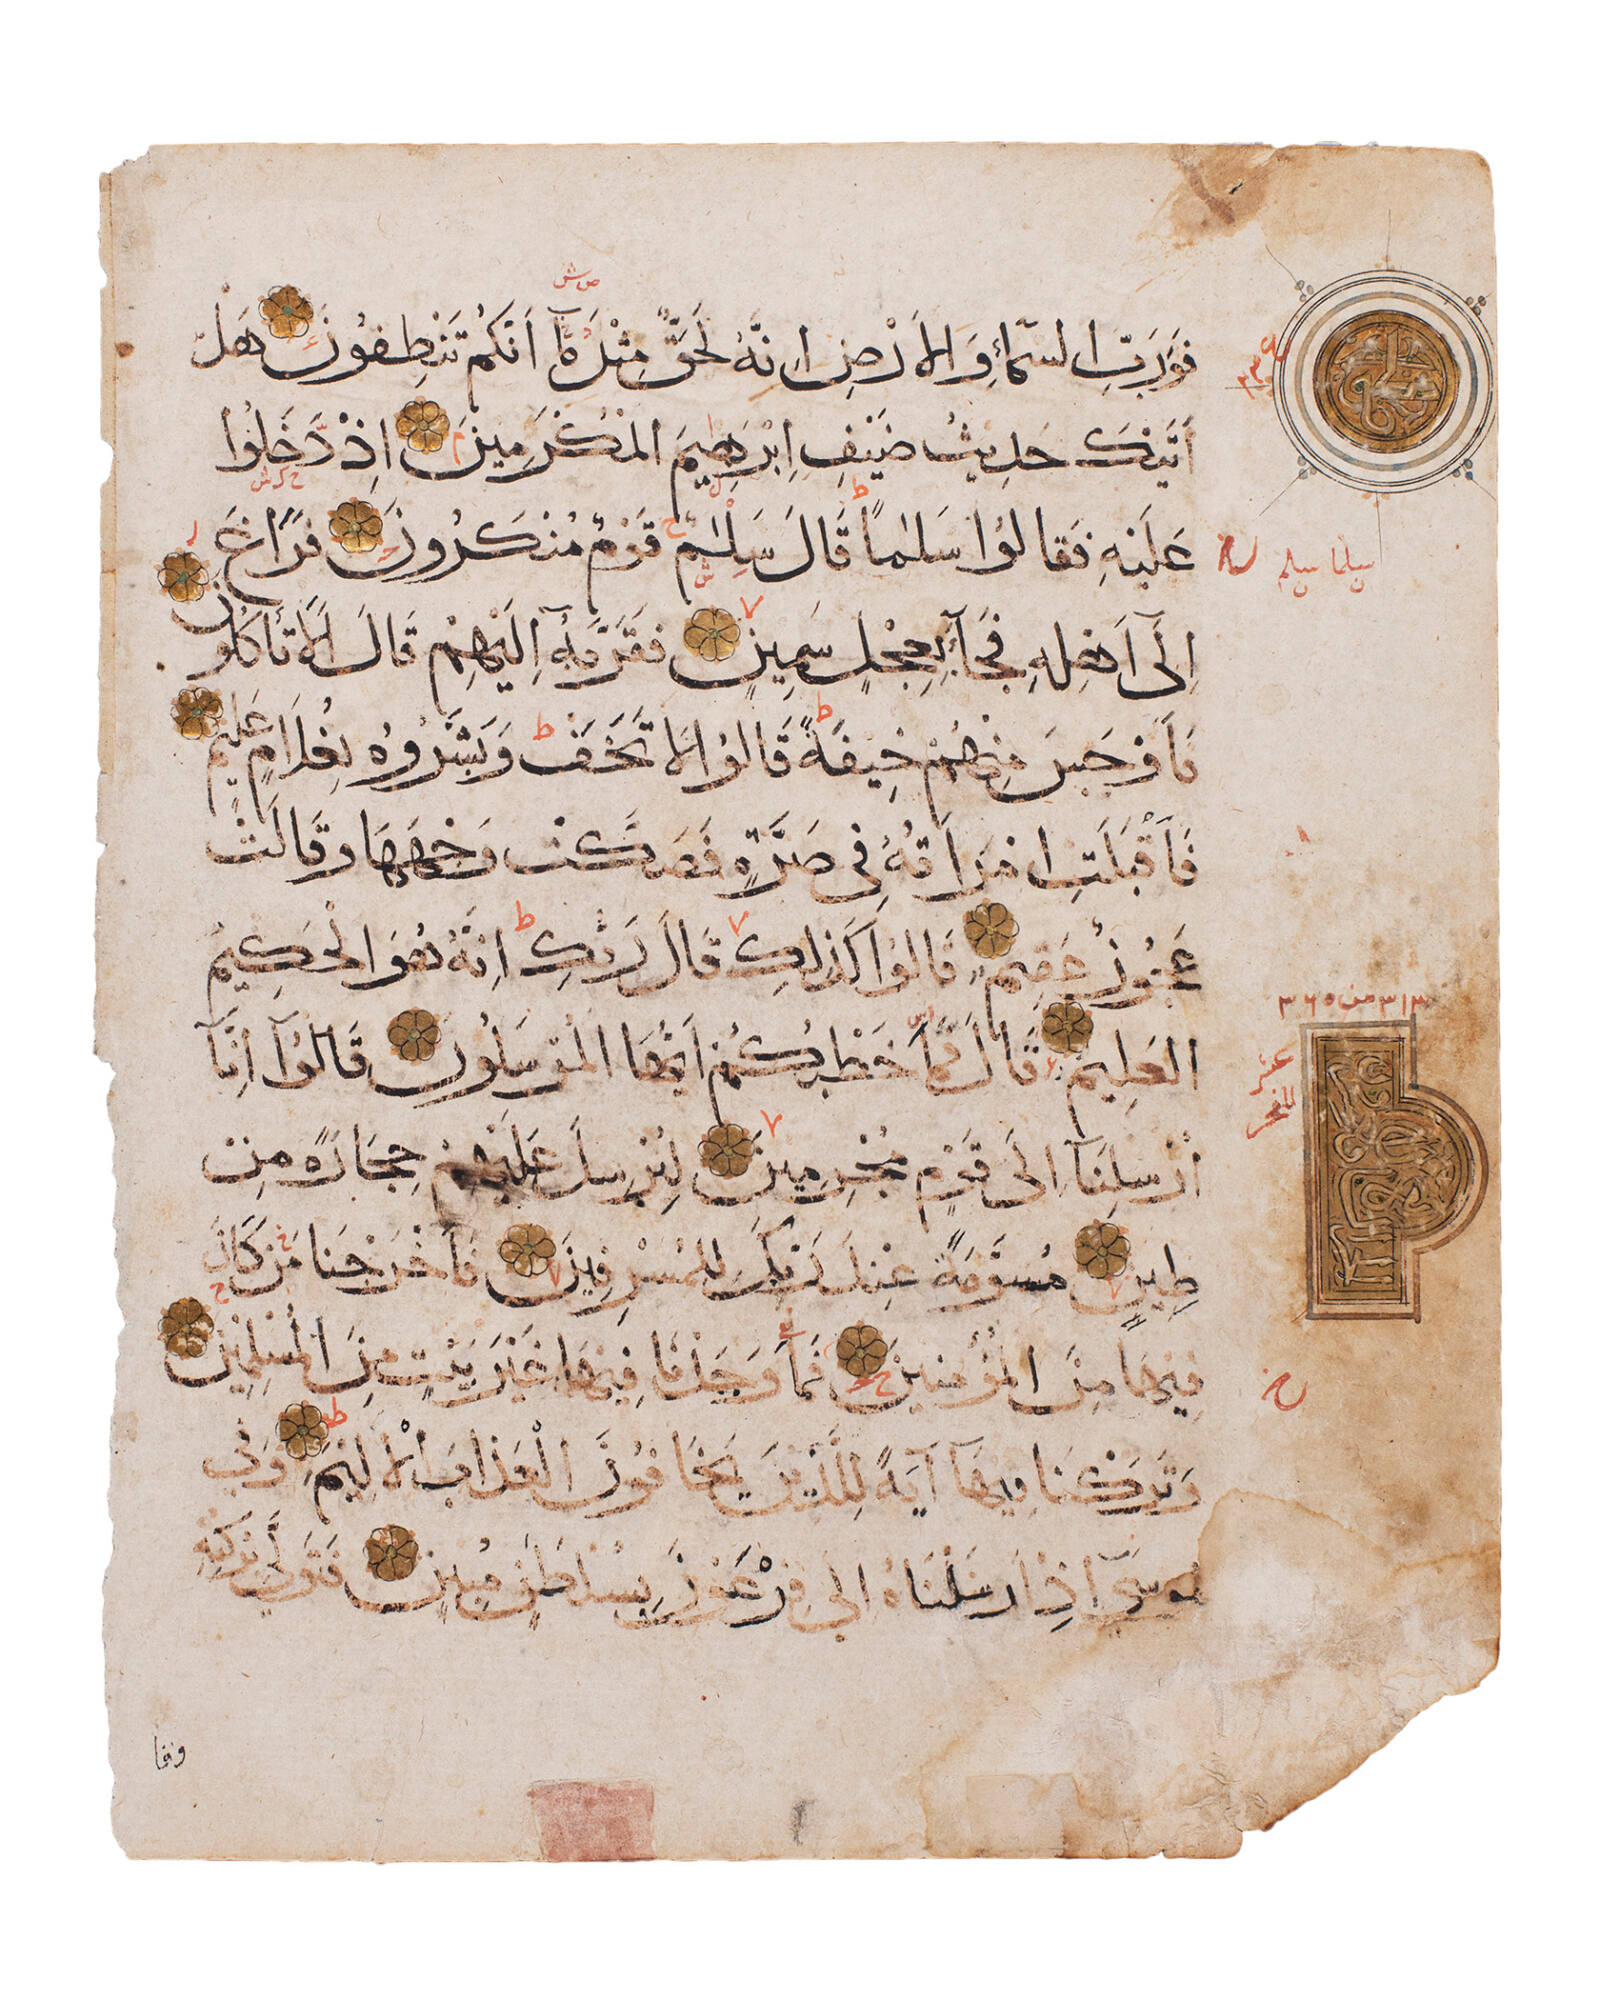 فَوَرَبِّ السَّمَاءِ وَالْأَرْضِ إِنَّهُ لَحَقٌّ مِثْلَ مَا أَنَّكُمْ تَنْطِقُونَ هَلْ
أَتَيٰكَ حَدِيثُ ضَيْفِ إِبْرٰهِيمَ الْمُكْرَمِينَ إِذْ دَّخَلُوا
عَلَيْهِ فَقَالُوا سَلٰمًا قَالَ سَلٰمٌ قَوْمٌ مُنْكَرُونَ فَرَاغَ
إِلَىٰ أَهْلِهِ فَجَآءَ بِعِجْلٍ سَمِينٍ فَقَرَّبَهُ إِلَيْهِمْ قَالَ أَلَا تَأْكُلُونَ
فَأَوْجَسَ مِنْهُمْ خِيفَةً قَالُوا لَا تَخَفْ وَبَشَّرُوهُ بِغُلَامٍ عَلِيمٍ
فَأَقْبَلَتِ امْرَأَتُهُ فِي صَرَّةٍ فَصَكَّتْ وَجْهَهَا وَقَالَتْ
عَجُوزٌ عَقِيمٌ قَالُوا كَذٰلِكِ قَالَ رَبُّكِ إِنَّهُ هُوَ الْحَكِيمُ
الْعَلِيمُ قَالَ فَمَا خَطْبُكُمْ أَيُّهَا الْمُرْسَلُونَ قَالُوآ إِنَّآ
أُرْسِلْنَآ إِلَىٰ قَوْمٍ مُجْرِمِينَ لِنُرْسِلَ عَلَيْهِمْ حِجَارَةً مِنْ
طِينٍ مُسَوَّمَةً عِنْدَ رَبِّكَ لِلْمُسْرِفِينَ فَأَخْرَجْنَا مَنْ كَانَ
فِيهَا مِنَ الْمُؤْمِنِينَ فَمَا وَجَدْنَا فِيهَا غَيْرَ بَيْتٍ مِنَ الْمُسْلِمِينَ
وَتَرَكْنَا فِيهَآ آيَةً لِلَّذِينَ يَخَافُونَ الْعَذَابَ الْأَلِيمَ وَفِي
مُوسَىٰ إِذْ أَرْسَلْنَاهُ إِلَىٰ فِرْعَوْنَ بِسُلْطٰنٍ مُبِينٍ فَتَوَلَّىٰ بِرُكْنِهِ
سلما سلم
٣١٣ من ٣٦٠
عشر